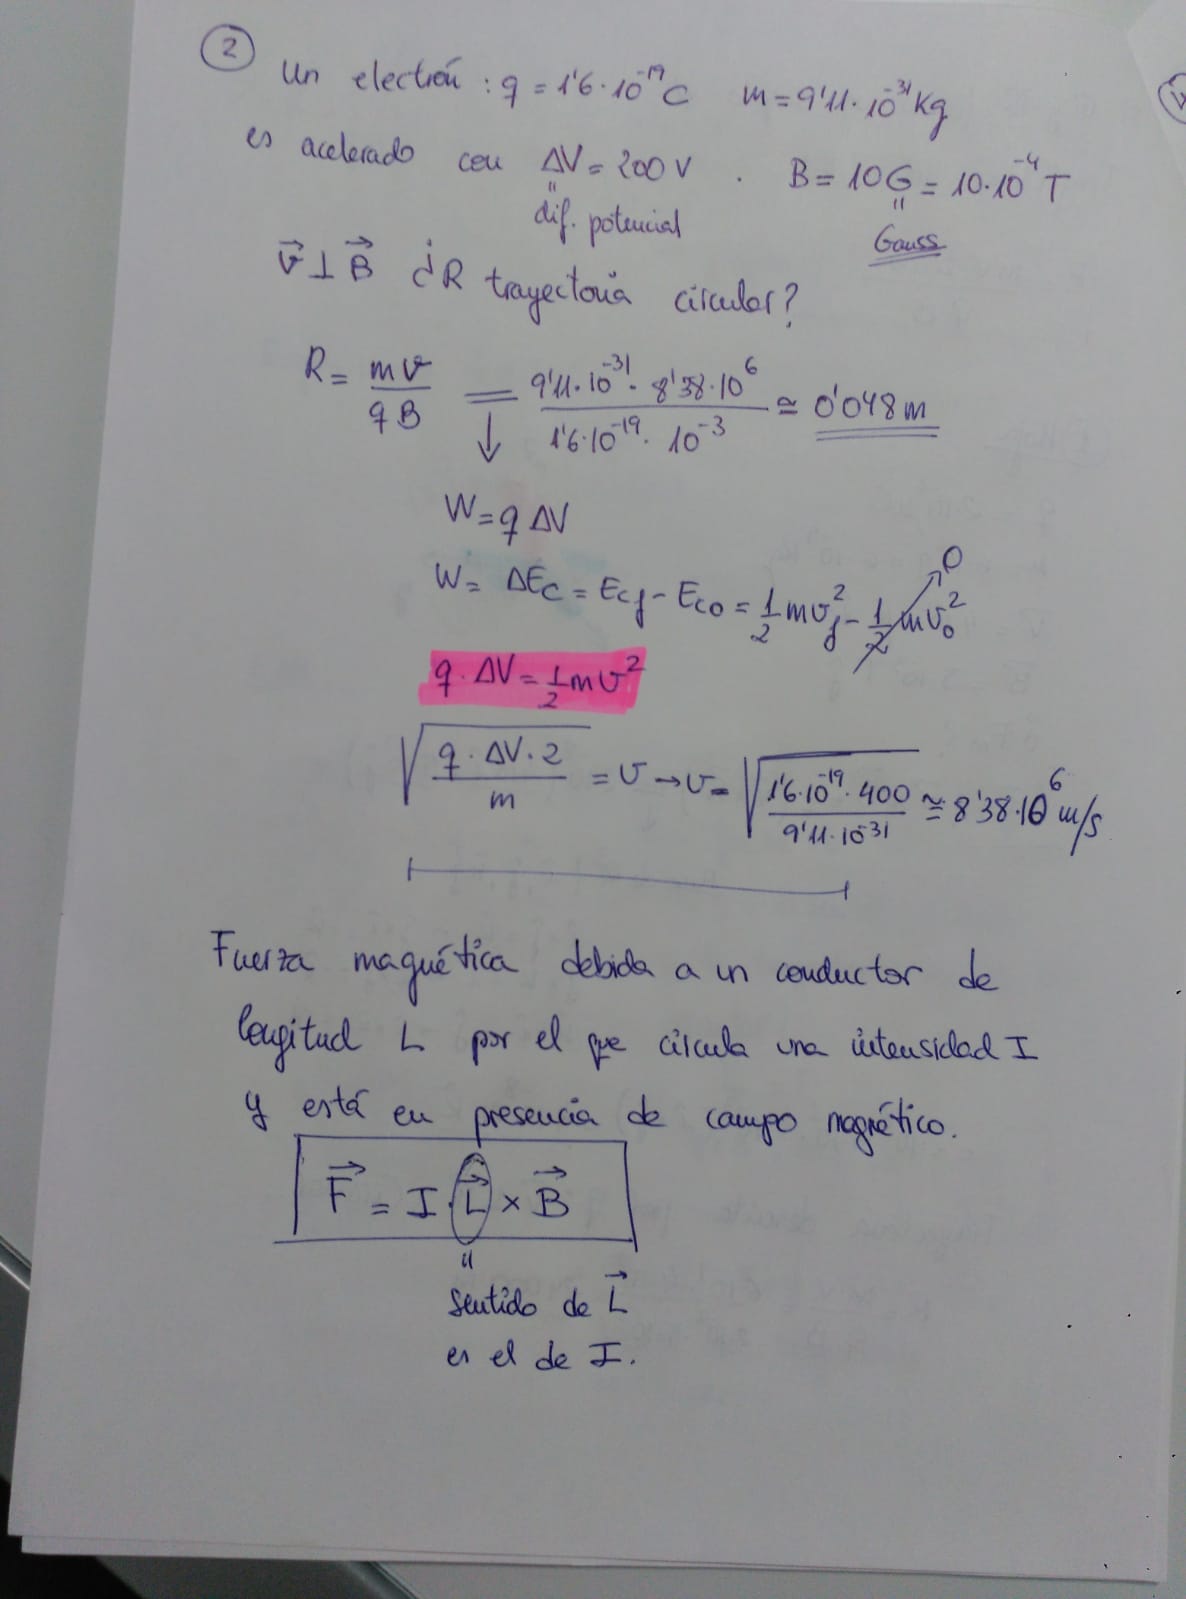 2
Un electrón : q = 1'6·10⁻¹⁹C m = 9'11·10⁻³¹Kg
es acelerado con ΔV = 200 V . B = 10G = 10·10⁻⁴ T
" "
dif. potencial Gauss
v⃗ ⊥ B⃗ ¿R trayectoria circular?
R = mv/qB = 9'11·10⁻³¹· 8'38·10⁶ / 1'6·10⁻¹⁹· 10⁻³ ≅ 0'048 m
↓
W = q ΔV
W = ΔEc = Ecf - Eco = 1/2 mvf² - 1/2 mvo² ↗ 0
q · ΔV = 1/2 mv²
√(q · ΔV · 2 / m) = v → v = √(1'6·10⁻¹⁹· 400 / 9'11·10⁻³¹) ≅ 8'38·10⁶ m/s
Fuerza magnética debida a un conductor de
longitud L por el que circula una intensidad I
y está en presencia de campo magnético.
F⃗ = I · L⃗ × B⃗
"
Sentido de L⃗
es el de I.